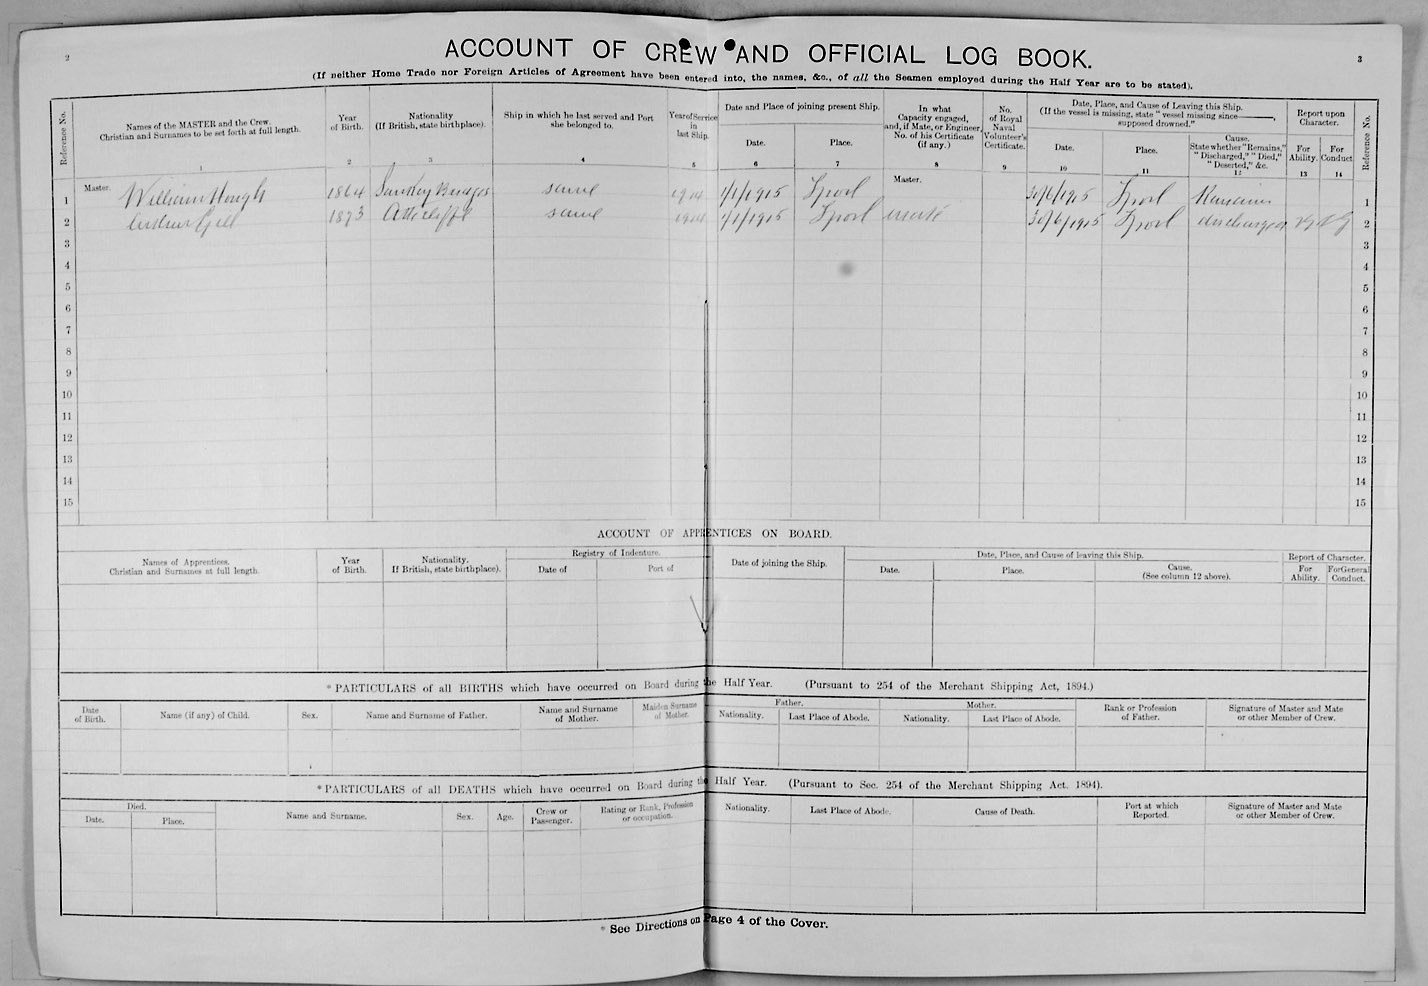 2
3
ACCOUNT OF CREW AND OFFICIAL LOG BOOK.
(If neither Home Trade nor Foreign Articles of Agreement have been entered into, the names, &c., of all the Seamen employed during the Half Year are to be stated).
Reference No. | Names of the MASTER and the Crew. Christian and Surnames to be set forth at full length. | Year of Birth. | Nationality (If British, state birthplace). | Ship in which he last served and Port she belonged to. | Year of Service in last Ship. | Date and Place of joining present Ship. | In what Capacity engaged, and, if Mate, or Engineer, No. of his Certificate (if any.) | No. of Royal Naval Volunteer's Certificate. | Date, Place, and Cause of Leaving this Ship. (If the vessel is missing, state "vessel missing since———, supposed drowned." | Report upon Character. | Reference No.
Date. | Place. | Date. | Place. | Cause. State whether "Remains," "Discharged," "Died," "Deserted," &c. | For Ability. | For Conduct
1 2 3 4 5 6 7 8 9 10 11 12 13 14
1 Master. William Hough 1864 Sankey Bridges same 1914 1/1/1915 Lpool Master. 30/6/1915 Lpool Remains 1
2 Arthur Gill 1873 same 1914 1/1/1915 Lpool mate 30/6/1915 Lpool discharged VG VG 2
3 3
4 4
5 5
6 6
7 7
8 8
9 9
10 10
11 11
12 12
13 13
14 14
15 15
ACCOUNT OF APPRENTICES ON BOARD.
Names of Apprentices. Christian and Surnames at full length. | Year of Birth. | Nationality. If British, state birthplace). | Registry of Indenture. | Date of joining the Ship. | Date, Place, and Cause of leaving this Ship. | Report of Character.
Date of | Port of | Date. | Place. | Cause. (See column 12 above). | For Ability. | For General Conduct.
* PARTICULARS of all BIRTHS which have occurred on Board during the Half Year. (Pursuant to 254 of the Merchant Shipping Act, 1894.)
Date of Birth. | Name (if any) of Child. | Sex. | Name and Surname of Father. | Name and Surname of Mother. | Maiden Surname of Mother. | Father. | Mother. | Rank or Profession of Father. | Signature of Master and Mate or other Member of Crew.
Nationality. | Last Place of Abode. | Nationality. | Last Place of Abode.
* PARTICULARS of all DEATHS which have occurred on Board during the Half Year. (Pursuant to Sec. 254 of the Merchant Shipping Act. 1894).
Died. | Name and Surname. | Sex. | Age. | Crew or Passenger. | Rating or Rank, Profession or occupation. | Nationality. | Last Place of Abode. | Cause of Death. | Port at which Reported. | Signature of Master and Mate or other Member of Crew.
Date. | Place.
* See Directions on Page 4 of the Cover.